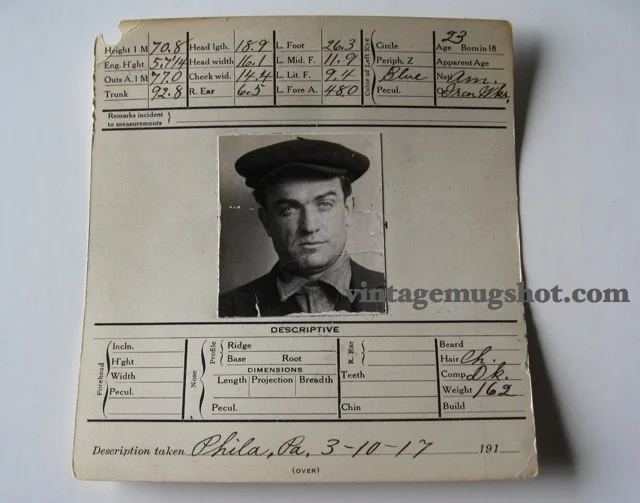 Height 1 M 70.8 Head lgth. 18.9 L. Foot 26.3 Circle Age 23 Born in 18
Eng. H'ght 5.7 1/4 Head width 16.1 L. Mid. F. 11.9 Periph, Z Apparent Age
Outs A. 1 M 77.0 Cheek wid. 14.4 L. Lit. F. 9.4 Blue Nat Am.
Trunk 92.8 R. Ear 6.5 L. Fore A. 48.0 Pecul. Iron Wkr.
Color of Left Eye
Remarks incident
to measurements
vintagemugshot.com
DESCRIPTIVE
Forehead
Incln.
H'ght
Width
Pecul.
Nose
Profile
Ridge
Base Root
DIMENSIONS
Length Projection Breadth
Pecul.
R. Ear
Teeth
Chin
Beard
Hair Ch.
Comp. Dk.
Weight 162
Build
Description taken Phila, Pa, 3-10-17 191
(OVER)